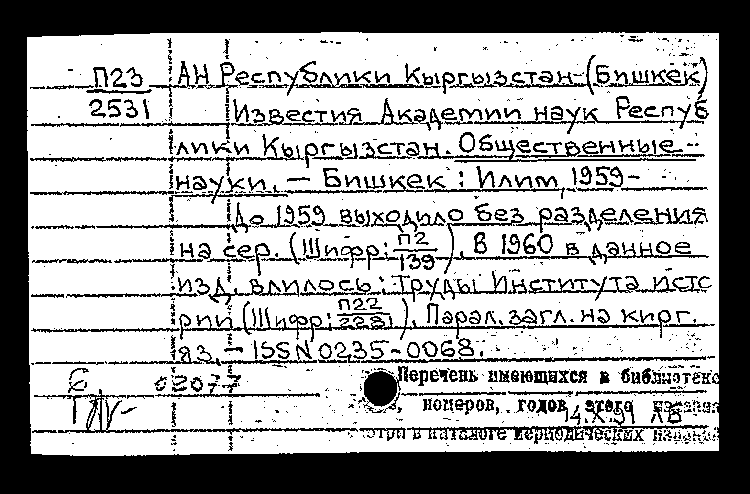 П23 АН Республики Кыргызстан (Бишкек)
2531 Известия Академии наук Респуб
лики Кыргызстан. Общественные
науки. — Бишкек : Илим, 1959-
До 1959 выходило без разделения
на сер. (Шифр: П2/139). В 1960 в данное
изд. влилось: Труды Института исто
рии (Шифр: П22/2281). Парал. загл. на кирг.
яз. - ISSN 0235-0068.
Е 02077 Перечень имеющихся в библиотеке
номеров, годов этого издания
14.X.91 ЛВ
смотри в каталоге периодических изданий